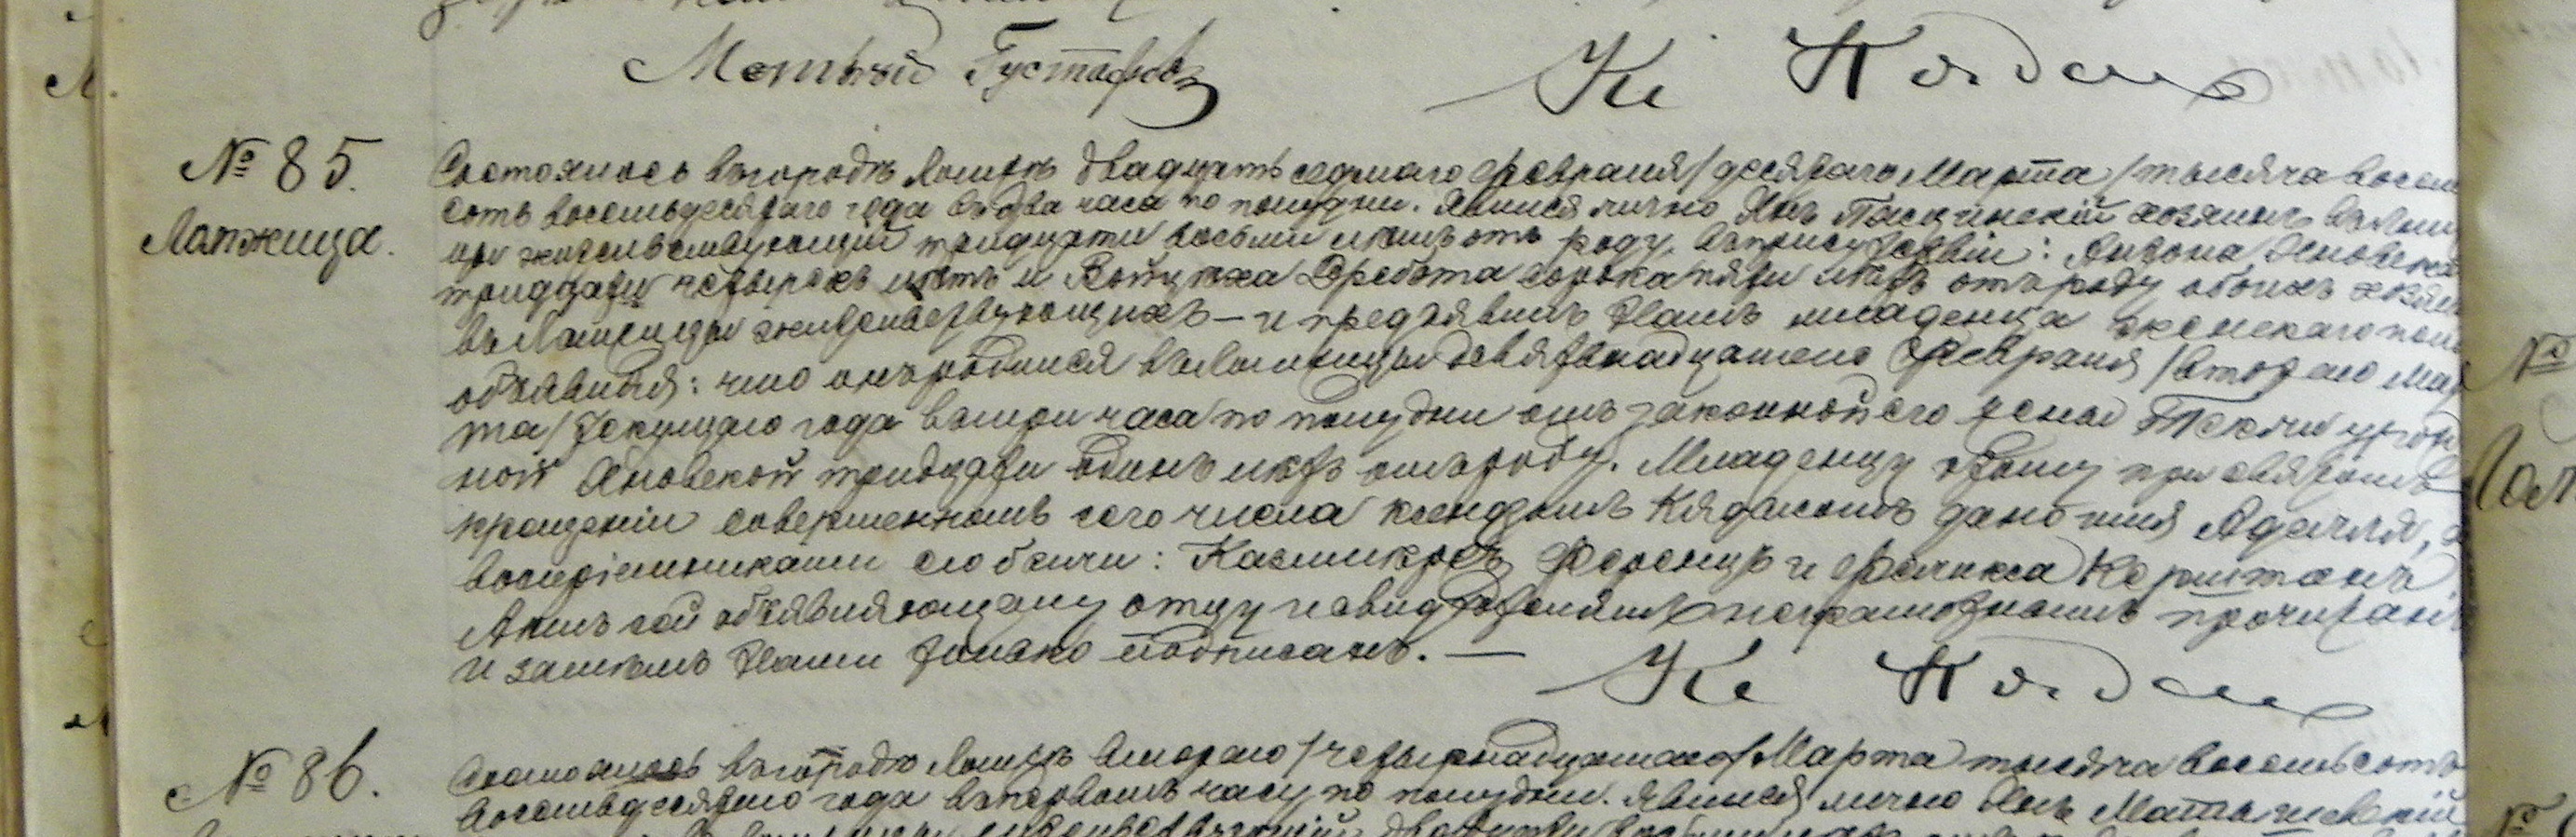 Матвѣй Густафов
Кс Кядам
№ 85.
Ломжица.
Состоялось въ городѣ Ломжѣ двадцать седьмаго Февраля /десятаго Марта/ тысяча восем
сотъ восемьдесятаго года въ два часа по полудни. Явился лично Янъ хозяинъ въ Ломж
цы жительствующій тридцати восьми лѣтъ отъ роду, въ присутствіи: Антона Яновска
тридцати четырехъ лѣтъ и сорока пяти лѣтъ отъ роду обоихъ хозяе
въ Ломжицы жительствующихъ – и предъявилъ Намъ младенца женскаго пола
объявляя: что онъ родился въ Ломжицы девятнадцатаго Февраля /втораго Мар
та/ текущаго года въ три часа по полудни отъ законной его жены Текли урож
ной Яновской тридцати одинъ лѣтъ отъ роду. Младенцу этому при святомъ
крещеніи совершенномъ сего числа ксендзомъ Кядамомъ дано имя Аделя, а
воспріемниками его были: Казимиръ Ференцъ и
Актъ сей объявляющему отцу и свидѣтелямъ неграмотнымъ прочитанъ
и затѣмъ Нами только подписанъ. —
Кс Кядам
№ 86.
Состоялось въ городѣ Ломжѣ втораго /четырнадцатаго/ Марта тысяча восемьсотъ
восемьдесятаго года въ первомъ часу по полудни. Явился лично Янъ
№
Лом